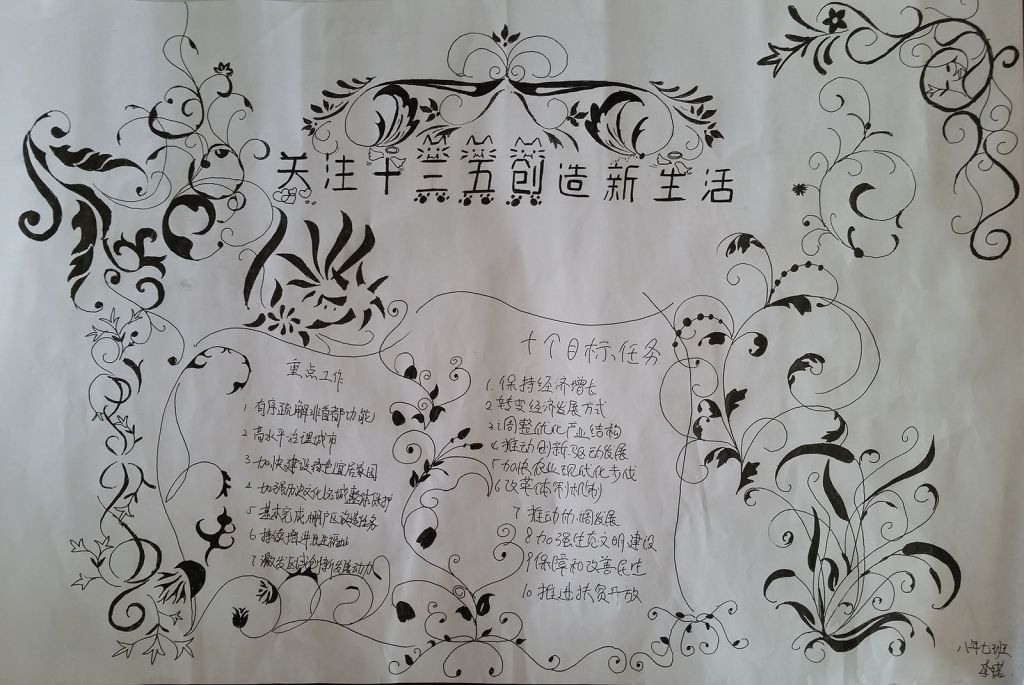 关注十三五创造新生活
重点工作
1 有序疏解非首都功能
2 高水平治理城市
3 加快建设绿色宜居家园
4 加强历史文化名城整体保护
5 基本完成棚户区改造任务
6 持续增进民生福祉
7 激发区域创新发展动力
十个目标任务
1. 保持经济增长
2 转变经济发展方式
3 调整优化产业结构
4. 推动创新驱动发展
5 加快农业现代化步伐
6 改革体制机制
7 推动协调发展
8 加强生态文明建设
9 保障和改善民生
10 推进扶贫开放
八年七班